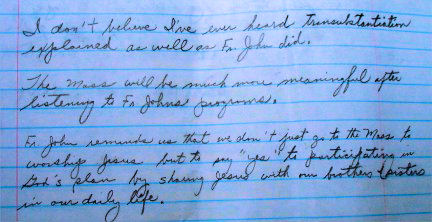 I don't believe I've ever heard transubstantiation
explained as well as Fr. John did.
The Mass will be much more meaningful after
listening to Fr Johns programs.
Fr. John reminds us that we don't just go to the Mass to
worship Jesus but to say "yes" to participating in
God's plan by sharing Jesus with our brothers & sisters
in our daily life.